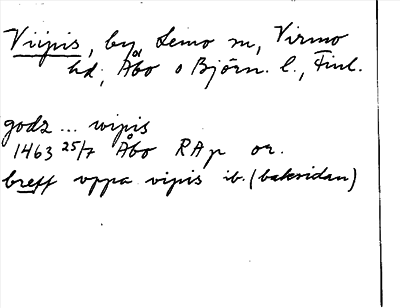 Viipis, by, Lemo sn, Virmo
hd, Åbo o Björn. l., Finl.
godz ... wipis
1463 25/7 Åbo RAp or.
breff vppa vipis ib. (baksidan)